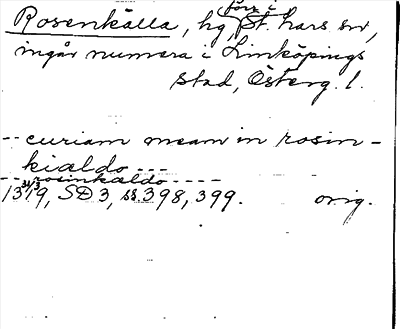 Rosenkälla, hg, förr i St. Lars sn,
ingår numera i Linköpings
stad, Österg. l.
-- curiam meam in rosin-
kialdo ---
-- rosinkældo ----
1319 31/3, SD 3, ss. 398, 399. orig.